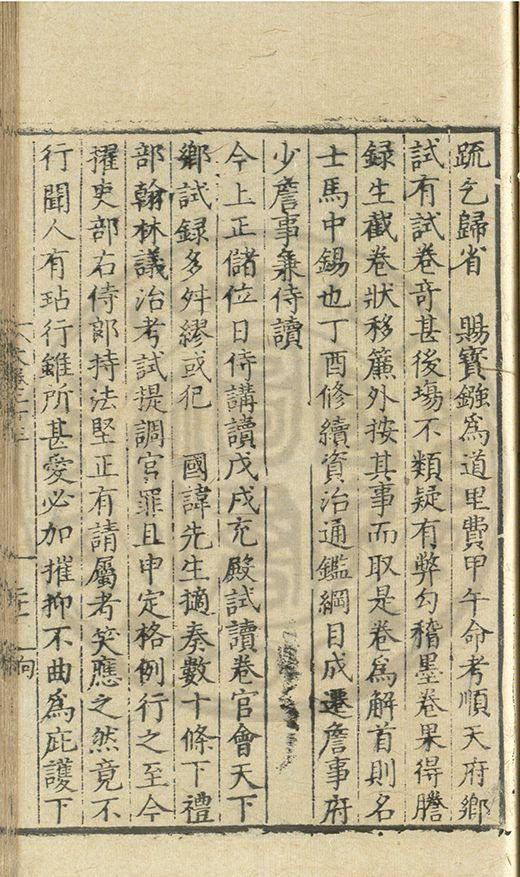 疏乞歸省　賜寶鏹為道里費甲午命考順天府鄉
試有試卷奇甚後塲不類疑有弊勾稽墨卷果得謄
録生截卷狀移簾外按其事而取是卷為解首則名
士馬中錫也丁酉修續資治通鑑綱目成遷詹事府
少詹事兼侍讀
今上正儲位日侍講讀戊戌充殿試讀卷官會天下
鄉試録多舛繆或犯　國諱先生摘奏數十條下禮
部翰林議治考試提調官罪且申定格例行之至今
擢吏部右侍郎持法堅正有請屬者笑應之然竟不
行聞人有玷行雖所甚愛必加摧抑不曲為庇護下